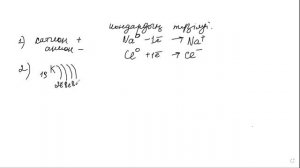 иондардың түзілуі.
1) катион +
анион −
Na⁰ −1ē → Na⁺
Cl⁰ +1ē → Cl⁻
2) ₁₉K ) ) ) )
2ē 8ē 8ē 1ē